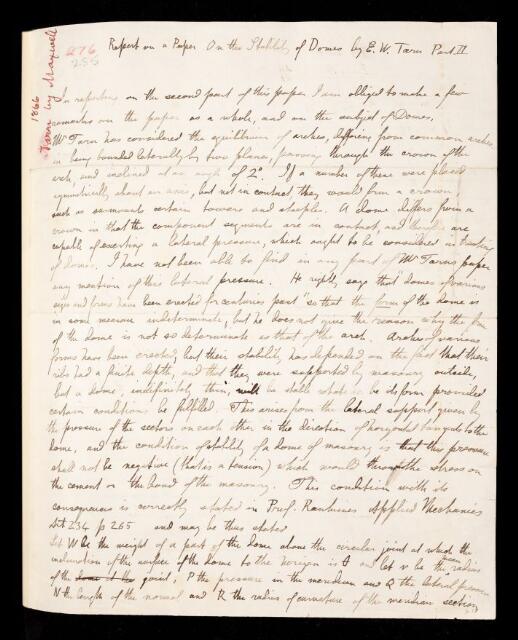 276
255
1866
Tarn by Maxwell
Report on a Paper On the Stability of Domes by E. W. Tarn Part II
In reporting on the second part of this paper I am obliged to make a few
remarks on the paper as a whole, and on the subject of Domes.
Mr Tarn has considered the equilibrium of arches, differing from common arches
in being bounded laterally by two planes, passing through the crown of the
arch and inclined at an angle of 2°. If a number of these were placed
symmetrically about an axis, but not in contact, they would form a crown
such as surmounts certain towers and steeples. A dome differs from a
crown in that the component segments are in contact, and therefore are
capable of exerting a lateral pressure, which ought to be considered in treating
of domes. I have not been able to find in any part of Mr Tarns paper
any mention of this lateral pressure. He rightly says that "domes of various
sizes and forms have been erected for centuries past" so that the form of the dome is
in some measure indeterminate, but he does not give the reason why the form
of the dome is not so determinate as that of the arch. Arches of various
forms have been erected, but their stability has depended on the fact that their
had a finite depth, and that they were supported by masonry outside
but a dome, indefinitely thin, will be stable whatever be its form provided
certain conditions be fulfilled. This arises from the lateral support given by
the pressure of the sectors on each other in the direction of horizontal tangents to the
dome, and the condition of stability of a dome of masonry is that this pressure
shall not be negative (that is a tension) which would throw the stress on
the cement or the bond of the masonry. This condition with its
consequences is correctly stated in Prof. Rankines Applied Mechanics
Art 234 p 265 and may be thus stated
Let W be the weight of a part of the dome above the circular joint at which the
inclination of the surface of the dome to the horizon is and let r be the radius
of the joint, P the pressure in the meridian and Q the lateral pressure
N the length of the normal and R the radius of curvature of the meridian section